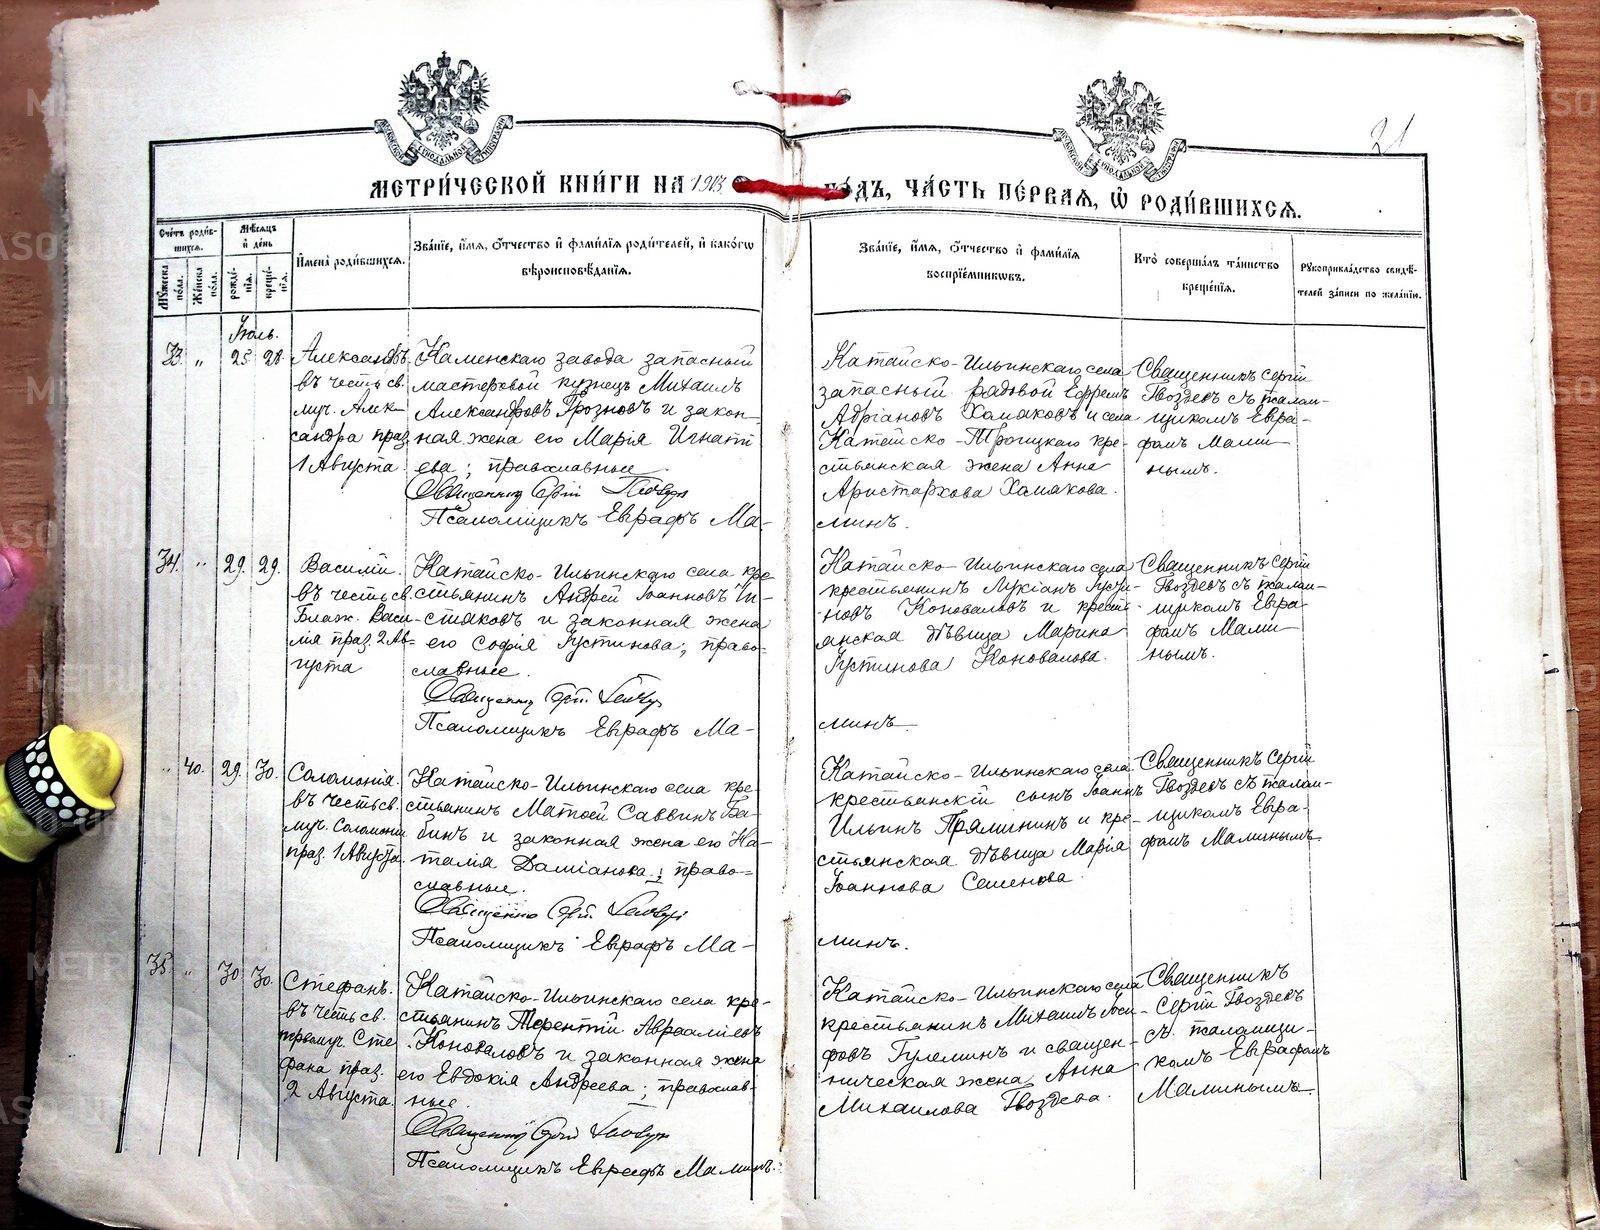 21
МЕТРИ́ЧЕСКОЙ КНИ́ГИ НА 1913 ГО́ДЪ, ЧА́СТЬ ПЕ́РВАЯ, Ѡ РОДИ́ВШИХСЯ.
Сче́тъ роди́в-
шихся.
Мѣ́сяцъ
и҆ де́нь
Му́жеска
по́ла.
Же́нска
по́ла.
рожде́-
нїя.
креще́-
нїя.
И҆мена̀ роди́вшихся.
Зва́нїе, и҆́мя, ѻ҆́тчество и҆ фами́лїя роди́телей, и҆ како́гѡ
вѣроисповѣ́данїя.
Зва́нїе, и҆́мя, ѻ҆́тчество и҆ фами́лїя
воспрїе́мниковъ.
Кто̀ соверша́лъ та́инство
креще́нїя.
Рукоприкла́дство свидѣ́-
телей за́писи по жела́нїю.
Іюль.
33 „ 25 28
Александръ
въ честь св.
муч. Алек-
сандра праз.
1 Августа
Каменскаго завода запасный
мастеровой кузнецъ Михаилъ
Александровъ Грозновъ и закон-
ная жена его Марія Игнатi
ева; православные.
Священник Сергій Гвоздев
Псаломщикъ Евграфъ Ма-
минъ.
Катайско-Ильинскаго села
запасный рядовой Ефремъ
Адріановъ Хомяковъ и села
Катайско-Троицкаго кре-
стьянская жена Анна
Аристархова Хомякова.
Священникъ Сергій
Гвоздевъ съ псалом-
щикомъ Евгра-
фомъ Мами-
нымъ.
34. „ 29. 29.
Василій.
въ честь св.
Блаж. Васи-
лія праз. 2 Ав-
густа
Катайско-Ильинскаго села кре-
стьянинъ Андрей Іоанновъ
стяковъ и законная жена
его Софія Іустинова; право-
славные.
Священник Сергій Гвоздев
Псаломщикъ Евграфъ Ма-
минъ
Катайско-Ильинскаго села
крестьянинъ Лукіанъ Іусти-
новъ Коноваловъ и кресть-
янская дѣвица Марина
Іустинова Коновалова.
Священникъ Сергій
Гвоздевъ съ псалом-
щикомъ Евгра-
фомъ Мами-
нымъ.
„ 40. 29. 30.
Соломонія.
въ честь св.
муч. Соломоніи
праз. 1 Августа.
Катайско-Ильинскаго села кре-
стьянинъ Матѳей Саввинъ Ба-
бинъ и законная жена его На-
талія Даміанова; право-
славные.
Священник Сергій Гвоздев
Псаломщикъ Евграфъ Ма-
минъ.
Катайско-Ильинскаго села
крестьянскій сынъ Іоаннъ
Ильинъ Прямининъ и кре-
стьянская дѣвица Марія
Іоаннова Семенова.
Священникъ Сергій
Гвоздевъ съ псалом-
щикомъ Евгра-
фомъ Маминымъ.
35. „ 30. 30.
Стефанъ.
въ честь св.
первомуч. Сте
фана праз.
2 Августа.
Катайско-Ильинскаго села кре-
стьянинъ Терентій Авраамiевъ
Коноваловъ и законная жена
его Евдокія Андреева; православ-
ные.
Священник Сергій Гвоздев
Псаломщикъ Евграфъ Маминъ.
Катайско-Ильинскаго села
крестьянинъ Михаилъ Іоси-
фовъ Гулеминъ и священ-
ническая жена Анна
Михаилова Гвоздева.
Священникъ
Сергій Гвоздевъ
съ псаломщи-
комъ Евграфомъ
Маминымъ.